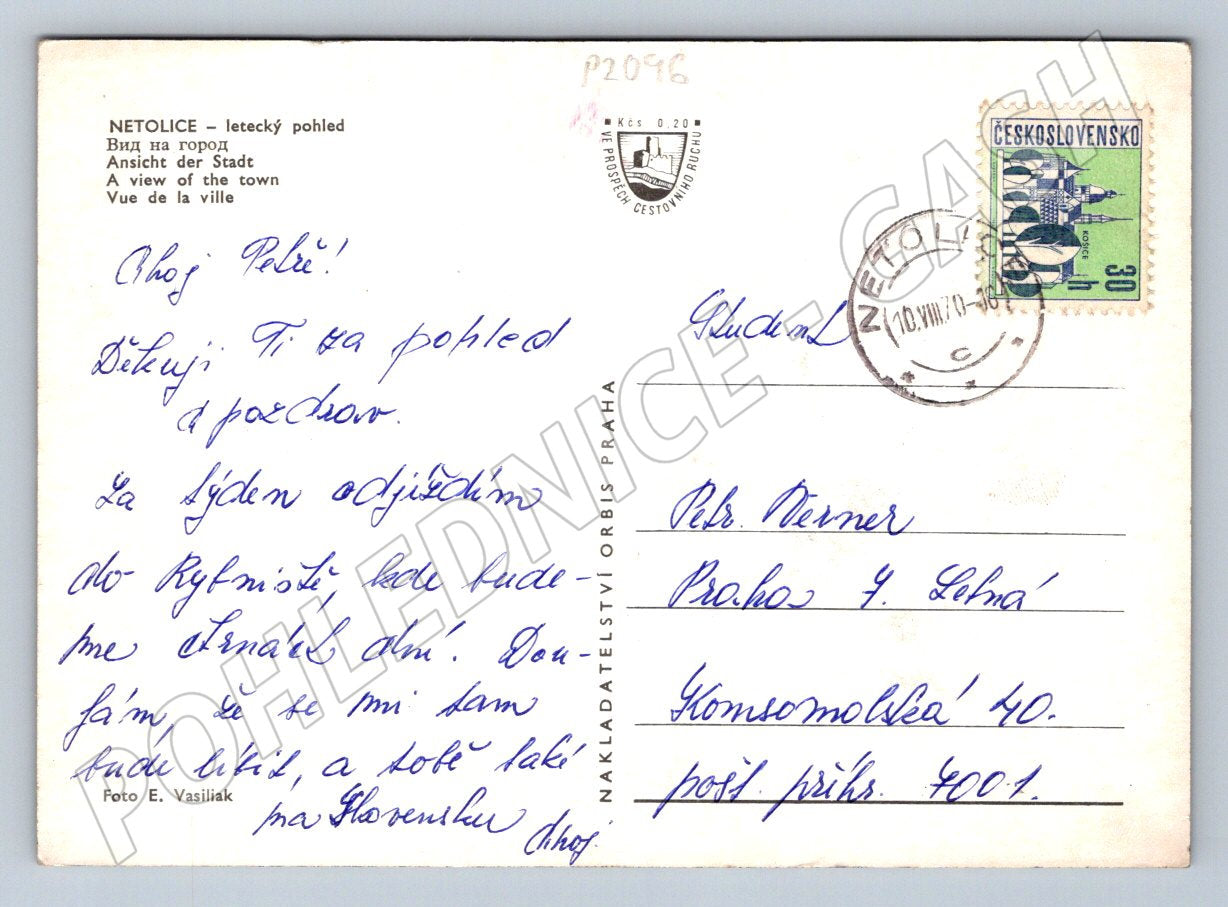 P2096
NETOLICE – letecký pohled
Вид на город
Ansicht der Stadt
A view of the town
Vue de la ville
Kčs 0,20
VE PROSPĚCH CESTOVNÍHO RUCHU
ČESKOSLOVENSKO
KOŠICE
30 h
NETOLICE
10.VIII.70
C
Ahoj Petře!
Děkuji Ti za pohled
a pozdrav.
Za týden odjíždím
do Rybniště, kde bude-
me čtrnáct dní. Dou-
fám, že se mi tam
bude líbit, a tobě také
na Slovensku
Ahoj
Foto E. Vasiliak
NAKLADATELSTVÍ ORBIS PRAHA
Student
Petr Werner
Praha 7. Letná
Komsomolská 40.
pošt. příhr. 7001.
POHLEDNICE - CASH